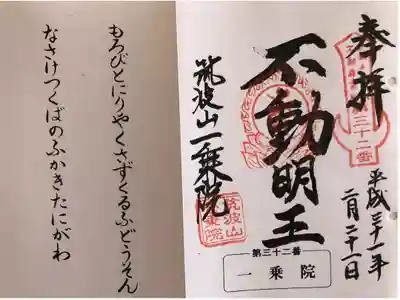 奉拝
三十二番
平成三十一年
二月二十一日
不動明王
筑波山一乗院
筑波山
一乗院
第三十二番
一乗院
もろびとにりやくさずくるふどうそん
なさけつくばのふかきたにがわ